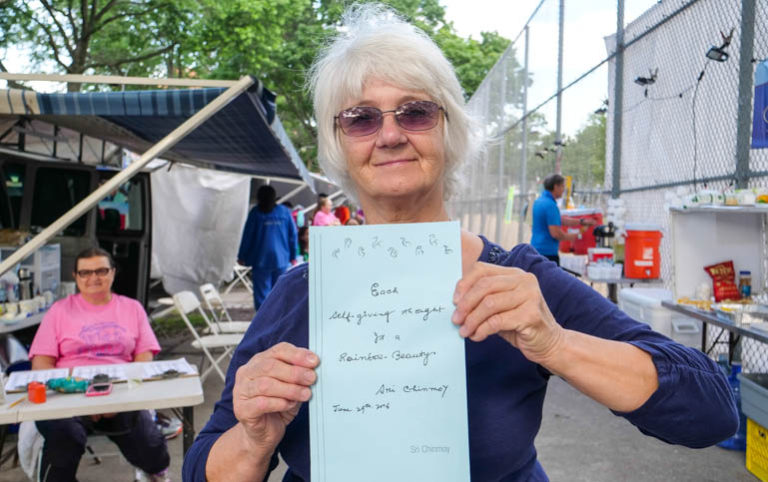 Each
Self-giving thought
Is a
Rainbow-Beauty.
Sri Chinmoy
June 29th, 2016
Sri Chinmoy